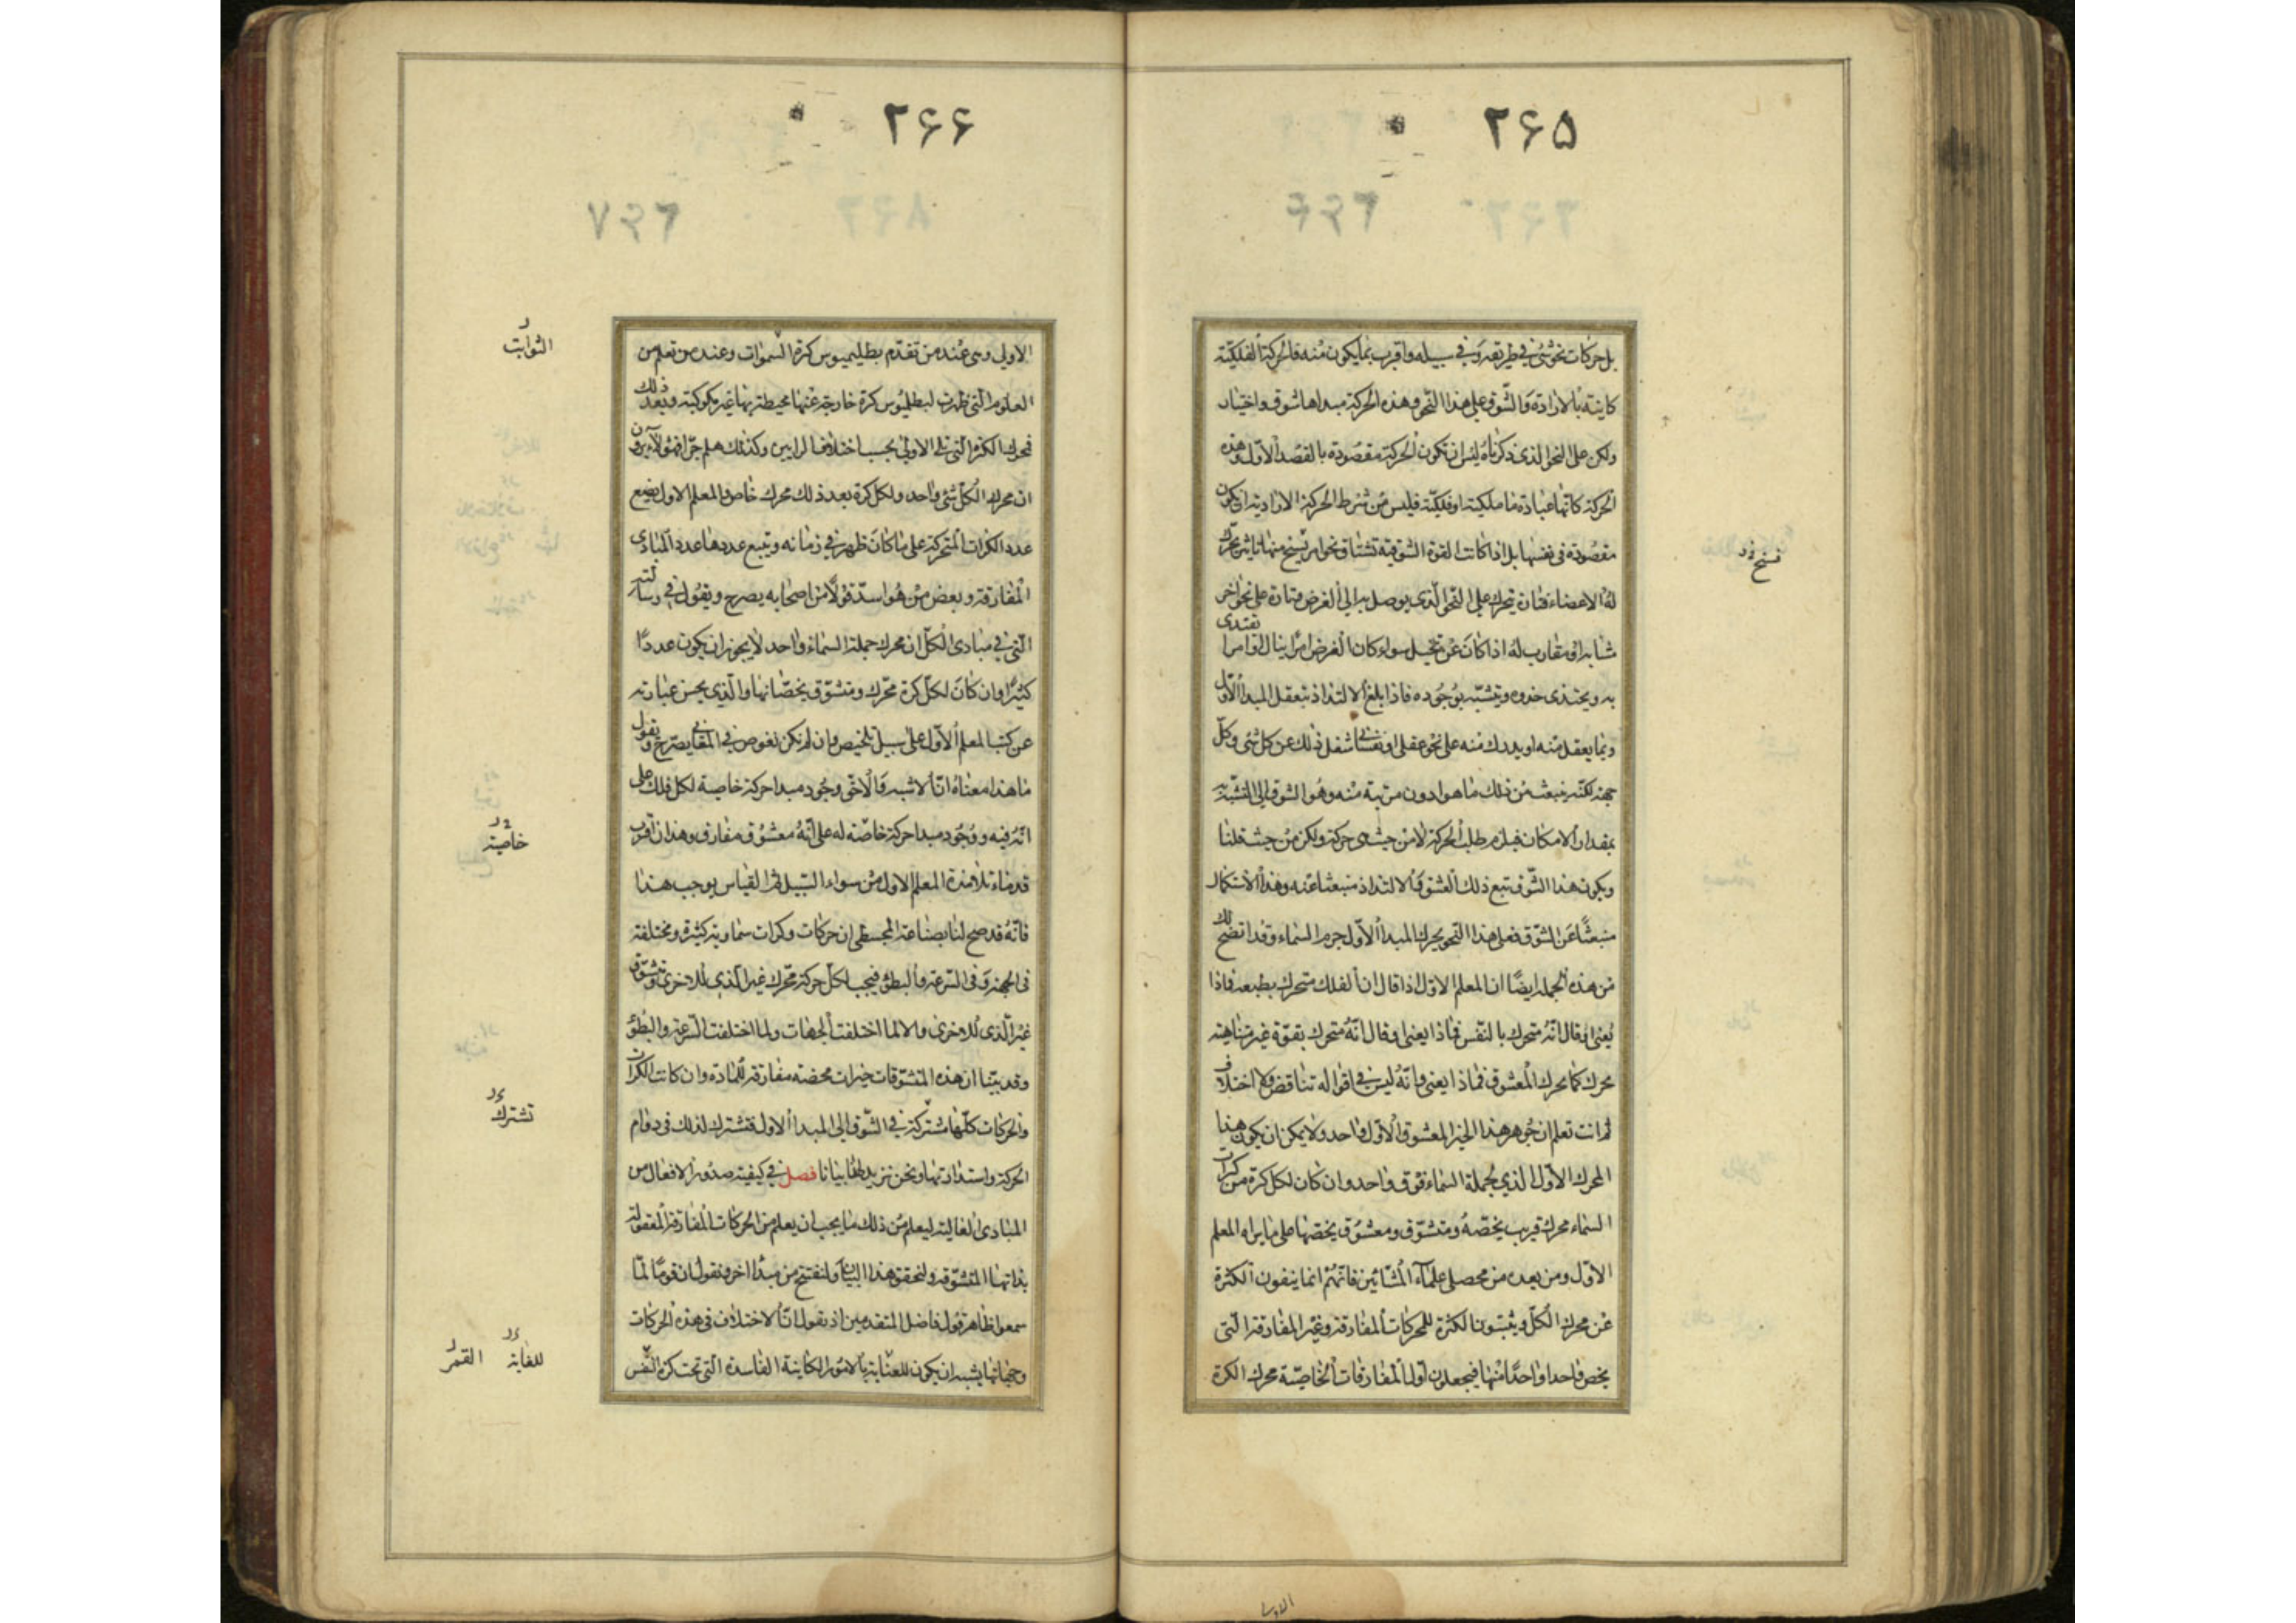 ۲۶۵
بل حركات نحو شئ في طريقه وفي سبيله واقرب بما يكون منه فالحركة الفلكية
كاينة بالارادة والشوق على هذا النحو وهذه الحركة مبداها شوق واختيار
ولكن على النحو الذى ذكرناه ليس ان تكون الحركة مقصودة بالقصد الاول وهذه
الحركة كانها عبادة ما ملكية او فلكية فليس من شرط الحركة الارادية ان يكون
مقصودة فى نفسها بل اذا كانت القوة الشوقية تشتاق نحو امر يسنح منها تاثير يحرك
له الاعضاء فتارة يتحرك على النحو الذى يوصل به الى الغرض وتارة على نحو اخر
مشابه او مقارب له اذا كان عن تخيل سواء كان الغرض امرا ينال او امرا
يقتدى
به ويحتذى حذوه ويتشبه بوجوده فاذا بلغ الالتذاذ بتعقل المبدأ الاول
وبما يعقل منه او يدرك منه على نحو عقلى او نفسانى شغل ذلك عن كل شئ وكل
جهة لكنه ينبعث من ذلك ما هو ادون مرتبة منه وهو الشوق الى التشبه به
بمقدار الامكان فيلزم طلب الحركة لا من حيث هى حركة ولكن من حيث قلنا
ويكون هذا الشوق تبع ذلك العشق والالتذاذ منبعثا عنه وهذا الاستكمال
منبعثا عن الشوق فعلى هذا النحو يحرك المبدأ الاول جرم السماء وقد اتضح لك
من هذه الجملة ايضا ان المعلم الاول اذا قال ان الفلك متحرك بطبعه فاذا
يعنى او قال انه متحرك بالنفس فماذا يعنى او قال انه متحرك بقوة غير متناهية
محرك كما يحرك المعشوق فماذا يعنى وانه ليس فى اقواله تناقض ولا اختلاف
ثم انت تعلم ان جوهر هذا الخير المعشوق الاول واحد ولا يمكن ان يكون هذا
المحرك الاول الذى لجملة السماء فوق واحد وان كان لكل كرة من كرات
السماء محرك قريب يخصه ومتشوق ومعشوق يخصها على ما يراه المعلم
الاول ومن بعده من محصلى علماء المشائين فانهم انما ينفون الكثرة
عن محرك الكل ويثبتون الكثرة للمحركات المفارقة وغير المفارقة التى
يخص واحدا واحدا منها فيجعلون اول المفارقات الخاصة محرك الكرة
۲۶۶
الاولى وهى عند من تقدم بطليميوس كرة السموات وعند من تعلم من
الثوابت
العلوم التى ظهرت لبطليوس كرة خارجة عنها محيطة بها غير مكوكبة وبعد ذلك
فمحرك الكرة التى تلى الاولى بحسب اختلاف الرايين وكذلك هلم جرا فهؤلاء يرون
ان محرك الكل شئ واحد ولكل كرة بعد ذلك محرك خاص والمعلم الاول يضع
عدد الكرات المتحركة على ما كان ظهر فى زمانه ويتبع عددها عدد المبادى
المفارقة وبعض من هو اسد قولا من اصحابه يصرح ويقول فى رسالته
التى فى مبادى الكل ان محرك جملة السماء واحد لا يجوز ان يكون عددا
كثيرا وان كان لكل كرة محرك ومتشوق يخصانها والذى يحسن عبارته
عن كتب المعلم الاول على سبيل تلخيص وان لم يكن يغوص فى المعانى يصرح ويقول
ما هذا معناه ان الاشبه والاحق وجود مبدا حركة خاصة لكل فلك على
انه فيه ووجود مبدا حركة خاصة له على انه معشوق مفارق وهذان اقرب
خاصية
قدماء تلامذة المعلم الاول من سواء السبيل ثم القياس يوجب هذا
فانه قد صح لنا بصناعة المجسطى ان حركات وكرات سماوية كثيرة ومختلفة
فى الجهة وفى السرعة والبطؤ فيجب لكل حركة محرك غير الذى للاخرى ومتشوق
غير الذى للاخرى والا لما اختلفت الجهات ولما اختلفت السرعة والبطؤ
وقد بينا ان هذه المتشوقات خيرات محضة مفارقة للمادة وان كانت الكرات
والحركات كلها مشتركة فى الشوق الى المبدأ الاول فتشترك لذلك فى دوام
تشترك
الحركة واستدارتها ونحن نزيد لهذا بيانا فصل فى كيفية صدور الافعال من
المبادى العالية ليعلم من ذلك ما يجب ان يعلم من الحركات المفارقة المعقولة
بذاتها المتشوقة ولنحقق هذا البيان ولنفتتح من مبدأ اخر ونقول ان قوما لما
سمعوا ظاهر قول فاضل المتقدمين اذ يقول ان الاختلاف فى هذه الحركات
وجهاتها يشبه ان يكون للعناية بالامور الكاينة الفاسدة التى تحت كرة الشمس
للغاية القمر